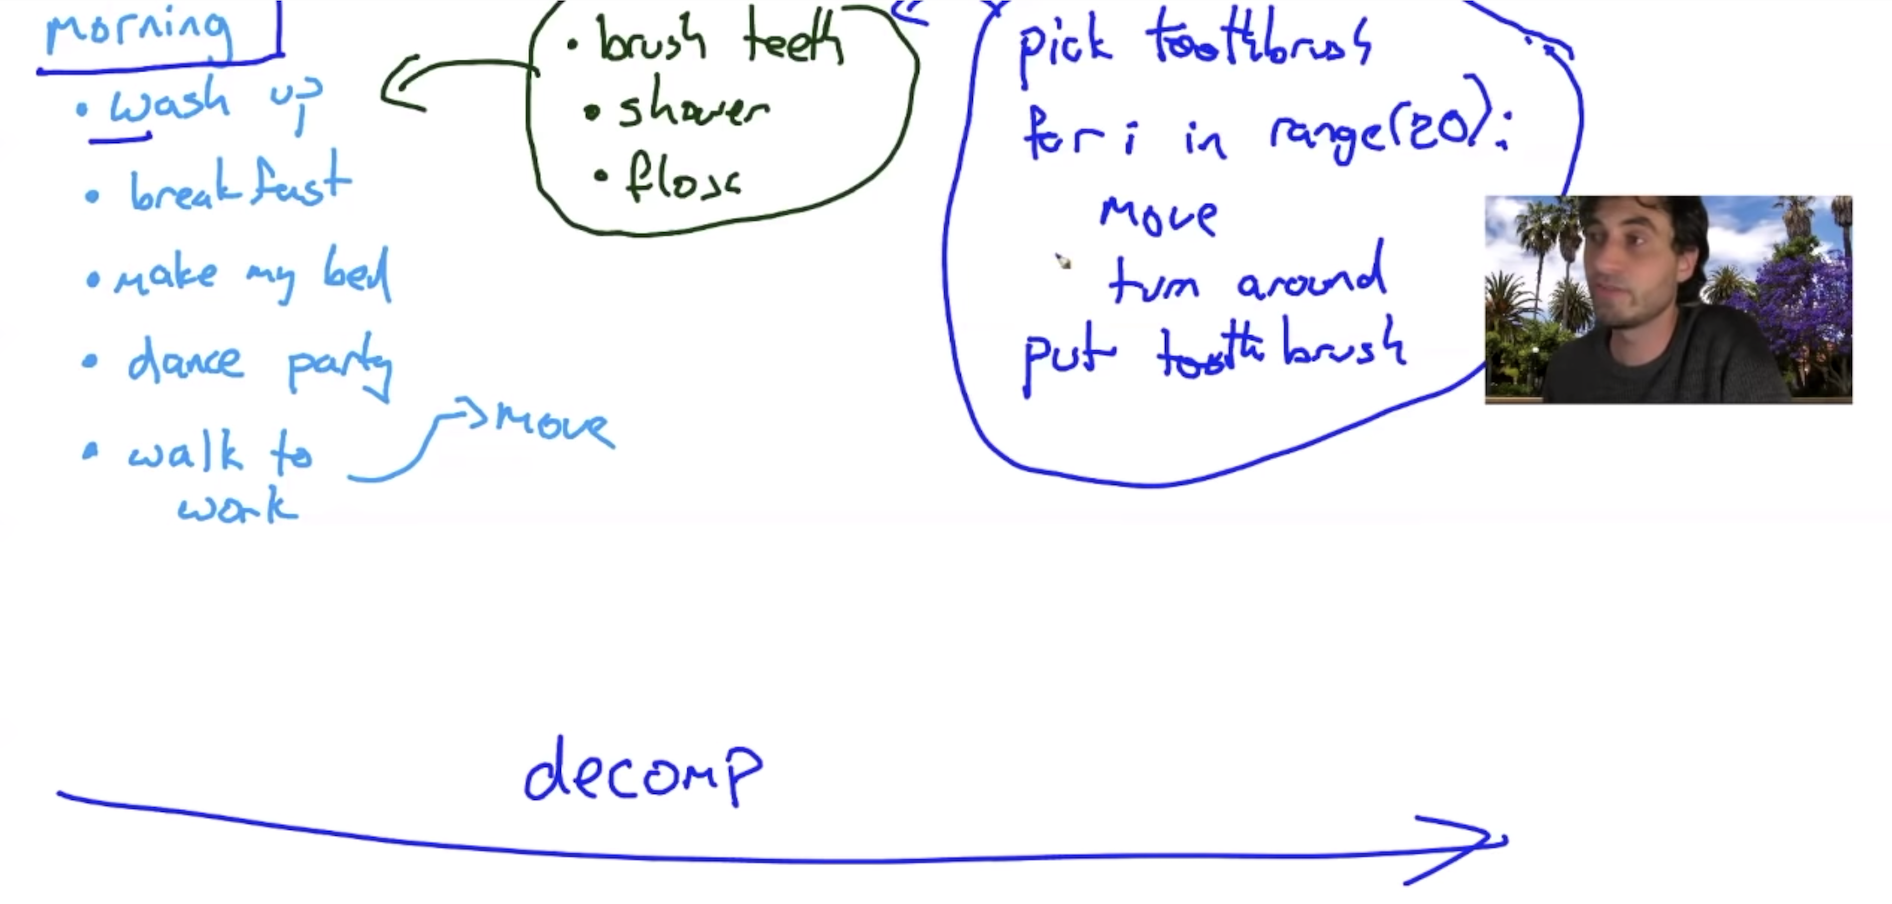 morning
• wash up
• breakfast
• make my bed
• dance party
• walk to
work
move
• brush teeth
• shower
• floss
pick toothbrush
for i in range(20):
move
turn around
put toothbrush
decomp